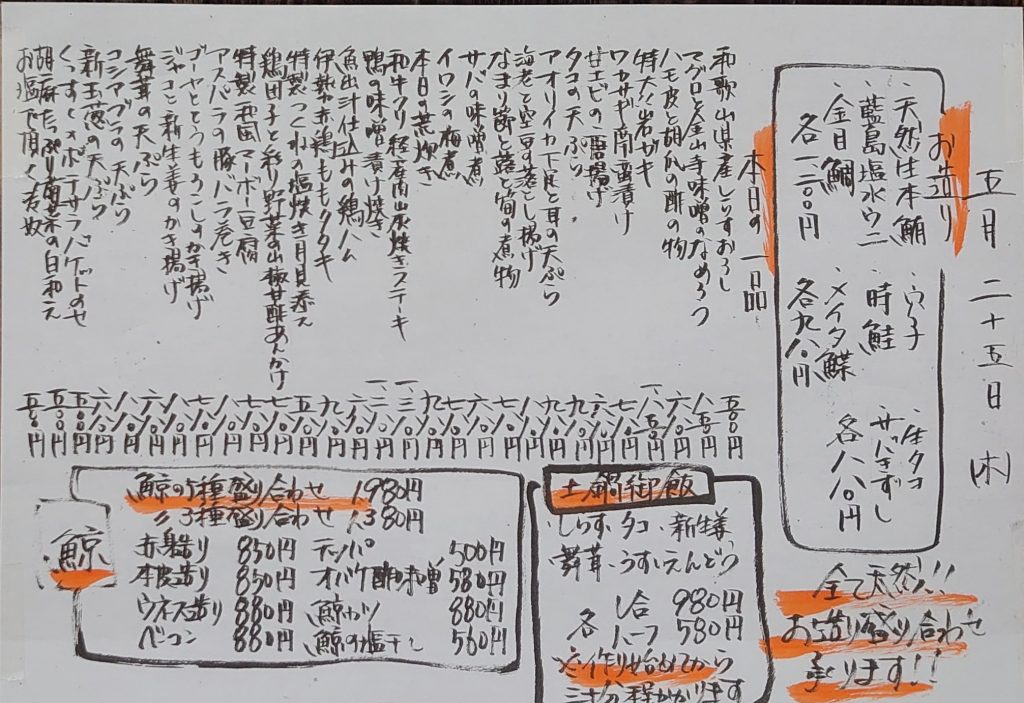 五月二十五日(木)
お造り
・天然生本鮪
・藍島塩水ウニ
・金目鯛
各一二〇〇円
・穴子
・時鮭
・メイタ鰈
各九八〇円
・生タコ
・サバきずし
各八八〇円
全て天然!!
お造り盛り合わせ
承ります!!
本日の一品
和歌山県産しらすおろし 五〇〇円
マグロと金山寺味噌のなめろう 八五〇円
ハモ皮と胡瓜の酢の物 六八〇円
特大!岩ガキ
ワカサギ南蛮漬け
甘エビの唐揚げ
タコの天ぷら
アオリイカ下足と耳の天ぷら
海老と空豆の落とし揚げ
なまり節と蕗と筍の煮物
サバの味噌煮
イワシの梅煮
本日の荒炊き
和牛クリ 経産肉山炭焼きステーキ
鴨の味噌漬け焼き
魚出汁仕込みの鶏ハム
伊勢赤鶏ももタタキ
特製つくねの塩焼き月見添え
鶏団子と彩り野菜の山椒甘酢あんかけ
特製和風マーボー豆腐
アスパラの豚バラ巻き
ゴーヤととうもろこしのかき揚げ
ジャコと新生姜のかき揚げ
舞茸の天ぷら
コシアブラの天ぷら
新玉葱の天ぷら
くっすぃーポテサラバゲットのせ 五〇〇円
胡麻たっぷり青菜の白和え 五〇〇円
お塩で頂く若奴 五〇〇円
土鍋御飯
・しらす・タコ・新生姜
・舞茸・うすいえんどう
各 一合 980円
ハーフ 580円
※作り始めてから
三十分程かかります
鯨
鯨の5種盛り合わせ 1,980円
〃3種盛り合わせ 1,380円
赤身造り 850円
本皮造り 850円
ウネス造り 880円
ベーコン 880円
テッパ 500円
オバケ酢味噌 580円
鯨カツ 880円
鯨の塩干し 560円